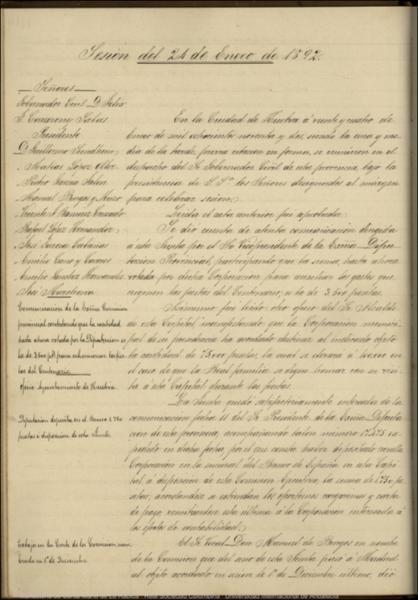 Sesión del 24 de Enero de 1892.
Señores
Gobernador Civil D. Felix
Presidente
D. Guillermo Sundheim
" Matias López
" Pedro García
Manuel Vargas
Rafael López Hernandez
José García Cabañas
Emilio Cano y Caceres
José Marchena
En la Ciudad de Huelva á veinte y cuatro de
Enero de mil ochocientos noventa y dos, siendo la una y me-
dia de la tarde, previa citacion en forma, se reunieron en el
despacho del Sr. Gobernador Civil de esta provincia, bajo la
presidencia de S. Sa. los Señores designados al margen
para celebrar sesion.
Leida el acta anterior fue aprobada.
Se dió cuenta de atenta comunicacion dirigida
á esta Junta por el Sr. Vicepresidente de la Excma. Diputa-
cion Provincial, participando que la suma, hasta ahora
votada por dicha Corporacion para auxiliar los gastos que
originen las fiestas del Centenario, es la de 3.500 pesetas.
Asimismo fué leido otro oficio del Sr. Alcalde
de esta Capital manifestando que la Corporacion munici-
pal de su presidencia ha acordado destinar al indicado objeto
la cantidad de 75.000 pesetas, la cual se elevara á
el caso de que la Real familia se digne honrar con su visi-
ta á esta Capital durante las fiestas.
La Junta quedó satisfactoriamente enterada de la
comunicacion fecha 11 del Sr. Presidente de la Excma. Diputa-
cion de esta provincia, acompañando talon número
expedido en dicha fecha, por el cual consta haber depositado aquella
Corporacion en la sucursal del Banco de España en esta Capi-
tal, á disposicion de esta Comision Ejecutiva, la suma de 1.750 pe-
setas, acordandose se extiendan los oportunos cargaremes y carta
de pago, remitiendose esta última á la Corporacion interesada á
los efectos de contabilidad.
El Sr. Vocal Don Manuel de Burgos en nombre
de la Comision que del seno de esta Junta pasó á Madrid
al objeto acordado en sesion de 1º de Diciembre último, dió
Comunicacion de la Excma. Comision
provincial contestando que la cantidad
hasta ahora votada por la Diputacion es
la de 3.500 ptas. para subvencionar las fies-
tas del Centenario
Oficio Ayuntamiento de Huelva.
Diputacion deposita en el Banco 1.750
pesetas á disposicion de esta Junta.
Trabajos en la Corte de la Comision nom-
brada en 1º de Diciembre